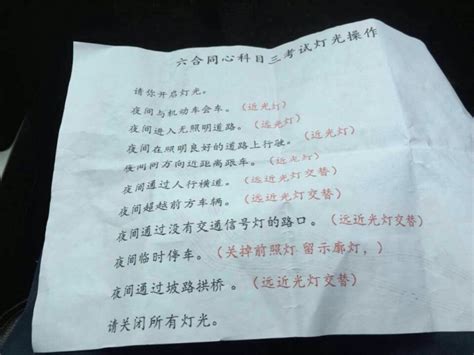 六合同心科目三考试灯光操作
请你开启灯光。
夜间与机动车会车。（近光灯）
夜间进入光照明道路。（远光灯）
夜间在照明良好的道路上行驶。（近光灯）
夜间同方向近距离跟车。（近光灯）
夜间通过人行横道。（远近光灯交替）
夜间超越前方车辆。（远近光灯交替）
夜间通过没有交通信号灯的路口。（远近光灯交替）
夜间临时停车。（关掉前照灯 留示廓灯，）
夜间通过坡路拱桥。（远近光灯交替）
请关闭所有灯光。